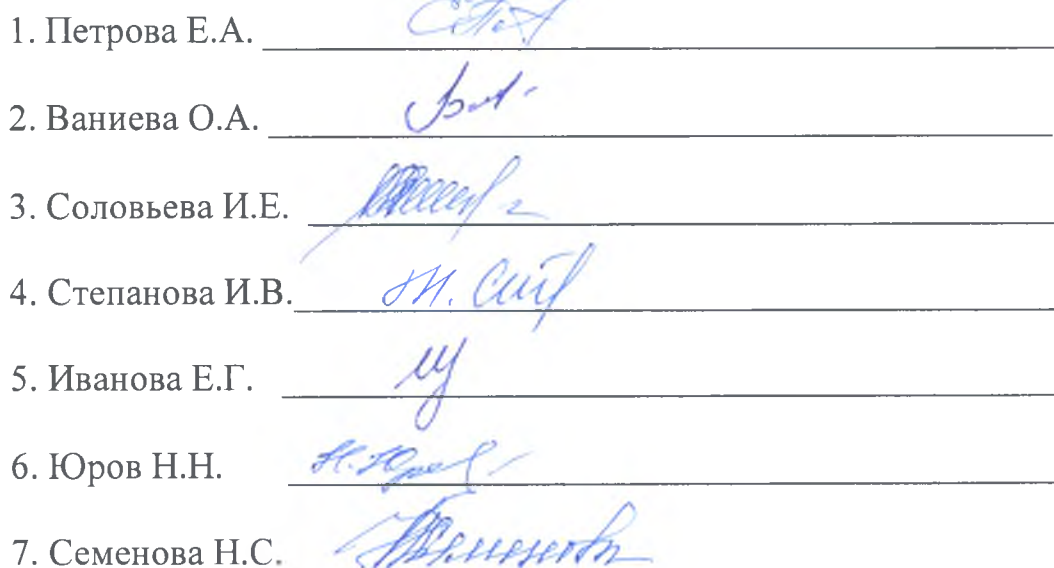 1. Петрова Е.А.
2. Ваниева О.А.
3. Соловьева И.Е.
4. Степанова И.В.
5. Иванова Е.Г.
6. Юров Н.Н.
7. Семенова Н.С.